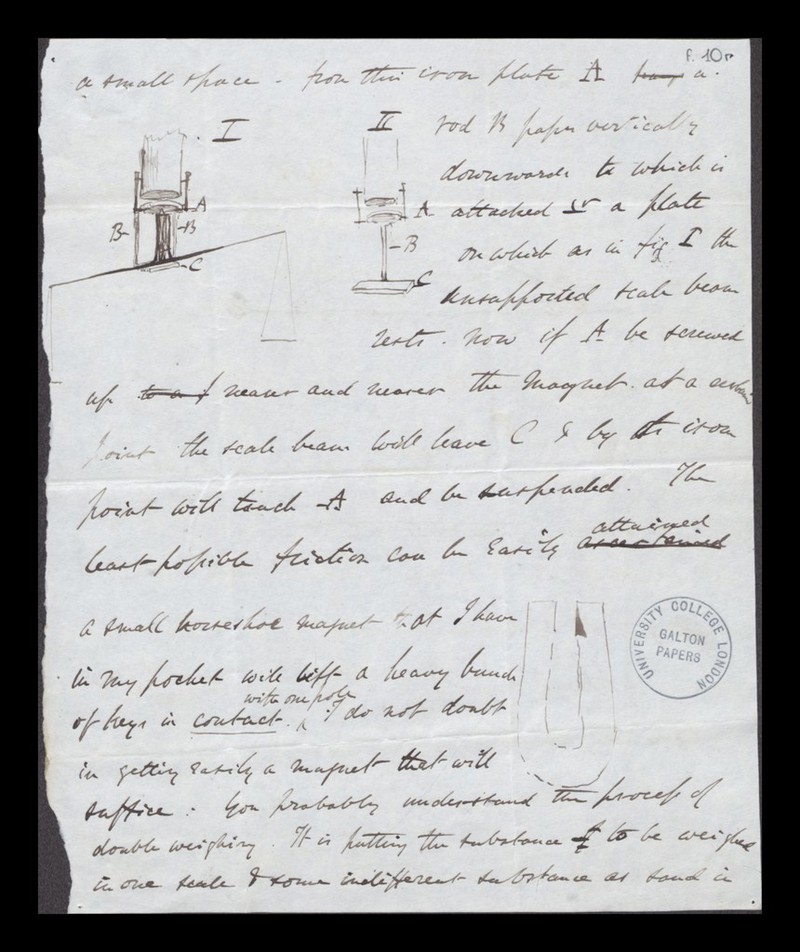 f. 10r
a small space - from this iron plate A a
I
II
rod B passes vertically
downwards to which is
A
B
B
C
A
B
C
attached a plate
on which as in fig I the
unsupported scale beam
rests. now if A be screwed
up to a f nearer and nearer the Magnet. at a certain
point the scale beam will leave C & by its iron
point will touch A and be suspended. The
least possible friction can be easily ascertained
attained
a small horseshoe magnet that I have
in my pocket will lift a heavy bunch
with one pole
of keys in contact. I do not doubt
in getting easily a magnet that will
suffice. You probably understand the process of
double weighing. It is putting the substance to be weighed
in one scale & some indifferent substance as sand in
UNIVERSITY COLLEGE LONDON
GALTON
PAPERS